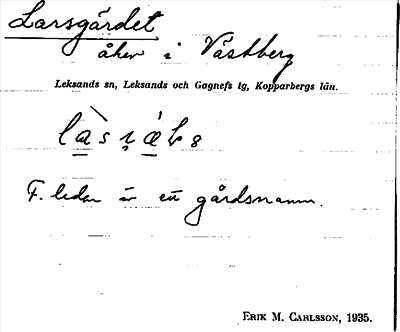 Larsgärdet
åker i Västberg
Leksands sn, Leksands och Gagnefs tg, Kopparbergs län.
F. leden är ett gårdsnamn.
ERIK M. CARLSSON, 1935.